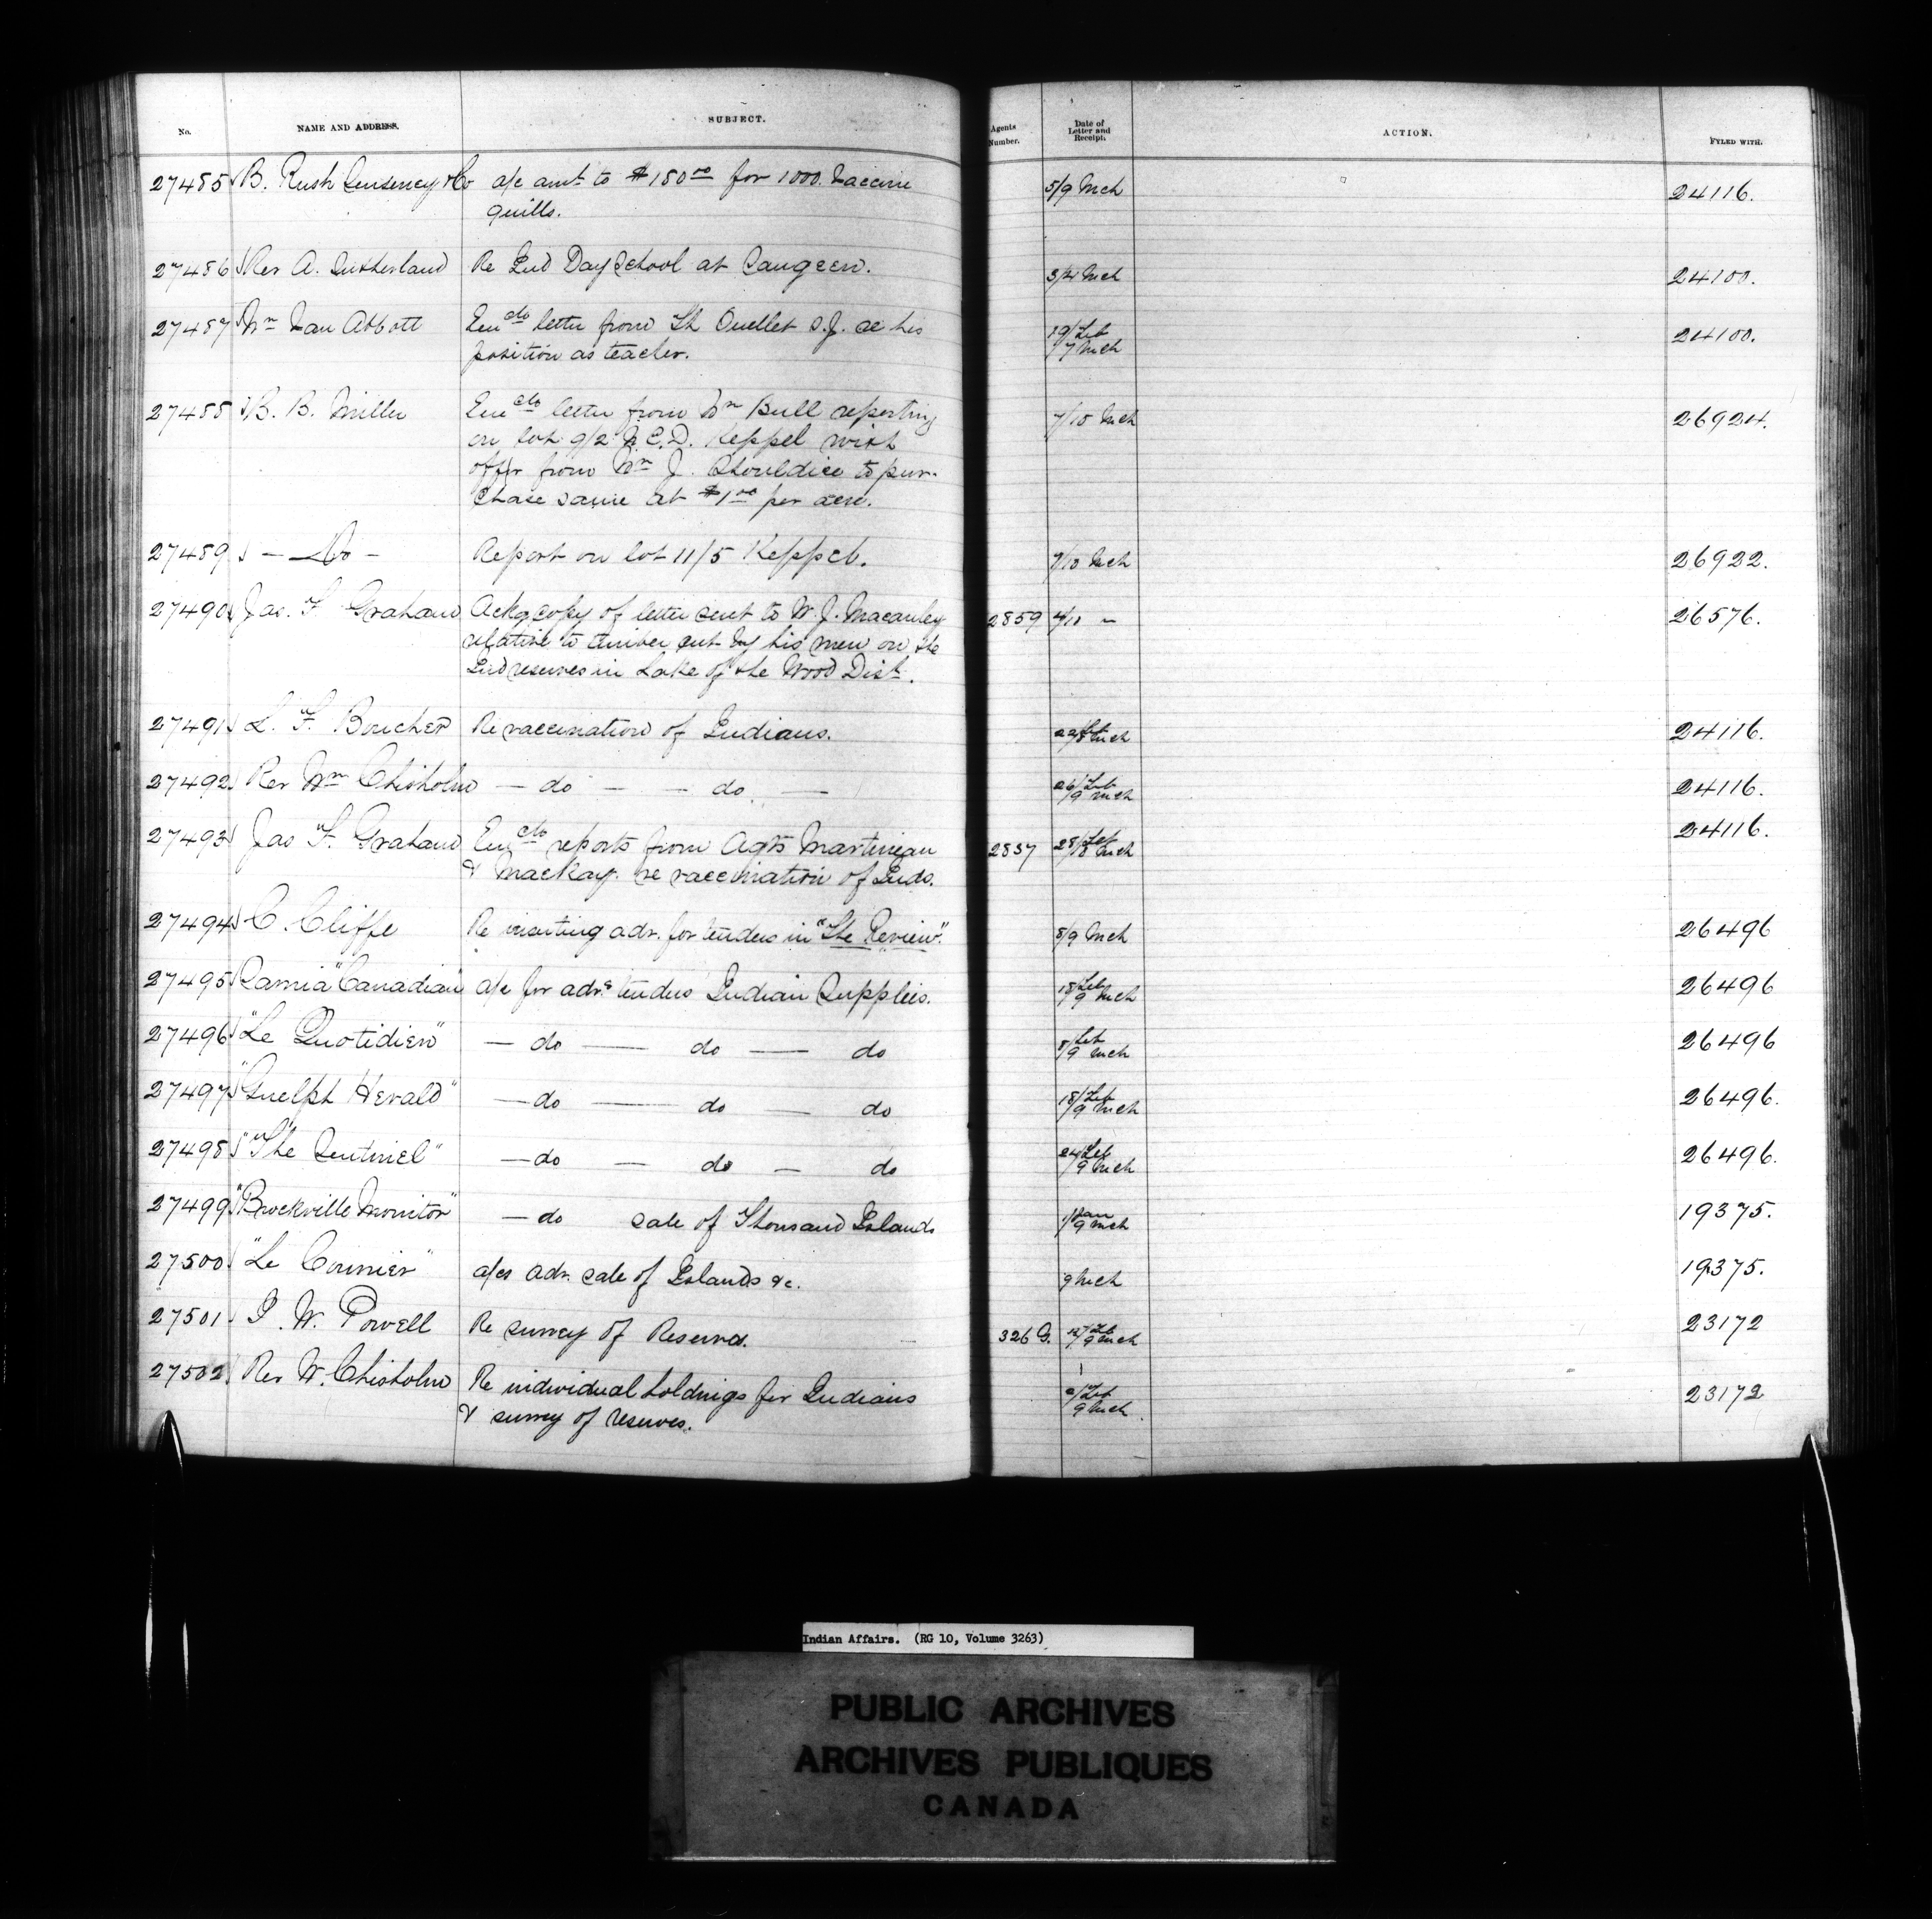 No. NAME AND ADDRESS. SUBJECT. Agents Number. Date of Letter and Receipt. ACTION. FYLED WITH.
27485 B. Rush Senseney & Co a/c amt to $180 00 for 1000 Vaccine 5/9 Mch 24116.
quills.
27486 Rev A. Sutherland Re Ind Day School at Saugeen. 3/4 Mch 24100.
27487 Wm Van Abbott Encclo letter from Th Ouellet S.J. re his 19/Feb 24100.
position as teacher. 7 Mch
27488 B. B. Miller Encclo letter from Wm Bull reporting 7/10 Mch 26924.
on lot 9/2 N.C.D. Keppel with
offer from Wm J. Shouldice to pur-
chase same at $1 00 per acre.
27489 — Do — Report on lot 11/5 Keppel. 7/10 Mch 26922.
27490 Jas. F. Graham Ackg copy of letter sent to W. J. Macauley 2859 4/11 " 26576.
relative to timber cut by his men on the
Ind reserves in Lake of the Wood Dist.
27491 L. F. Boucher Re vaccination of Indians. Feb Mch 24116.
27492 Rev Wm Chisholm — do — — do — 26/Feb 9 Mch 24116.
27493 Jas F. Graham Encclo reports from Agts Martineau 2857 28/Feb Mch 24116.
& Mackay re vaccination of Inds.
27494 C. Cliffe Re inserting adv. for tenders in "The Review". 8/9 Mch 26496
27495 Sarnia "Canadian" a/c for advg tenders Indian Supplies. 18/Feb 9 Mch 26496
27496 "Le Quotidien" — do — do — do 8/Feb 9 Mch 26496
27497 "Guelph Herald" — do — do — do 18/Feb 9 Mch 26496.
27498 "The Sentinel" — do — do — do 24/Feb 9 Mch 26496.
27499 "Brockville Monitor" — do sale of Thousand Islands 1/Jan 9 Mch 19375.
27500 "Le Courrier" a/cs adv. sale of Islands &c. 9 Mch 19375.
27501 I. W. Powell Re survey of Reserves. 326 G. Feb 9 Mch 23172
27502 Rev W. Chisholm Re individual holdings for Indians Feb 23172
& survey of reserves. 9 Mch
Indian Affairs. (RG 10, Volume 3263)
PUBLIC ARCHIVES
ARCHIVES PUBLIQUES
CANADA